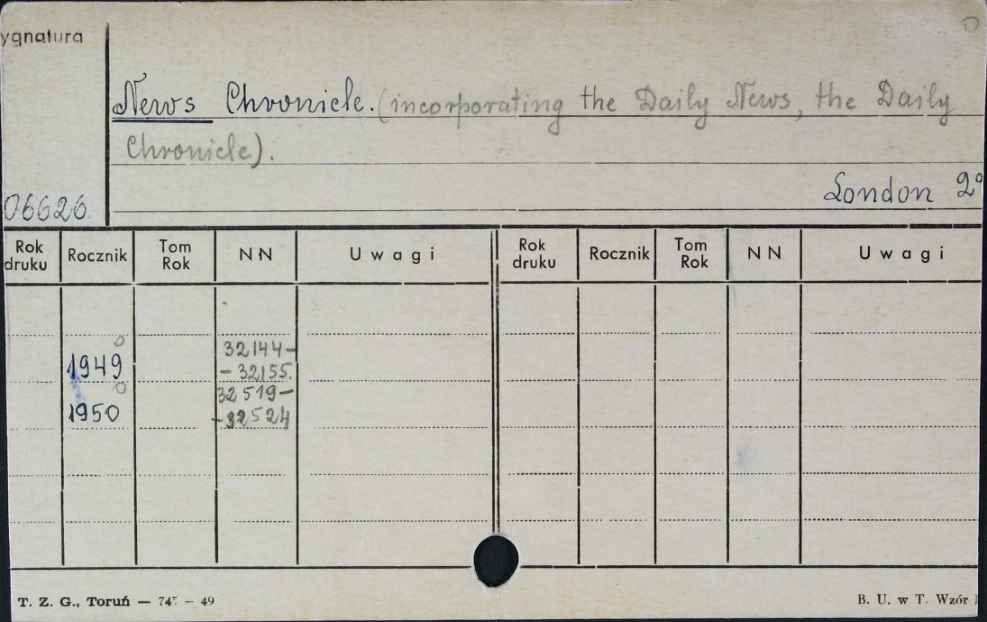 ygnatura
News Chronicle. (incorporating the Daily News, the Daily
Chronicle).
London 2º
06626
Rok druku Rocznik Tom Rok NN Uwagi Rok druku Rocznik Tom Rok NN Uwagi
1949 32144-
- 32155.
1950 32519-
-32524
T. Z. G., Toruń — - 49
B. U. w T. Wzór